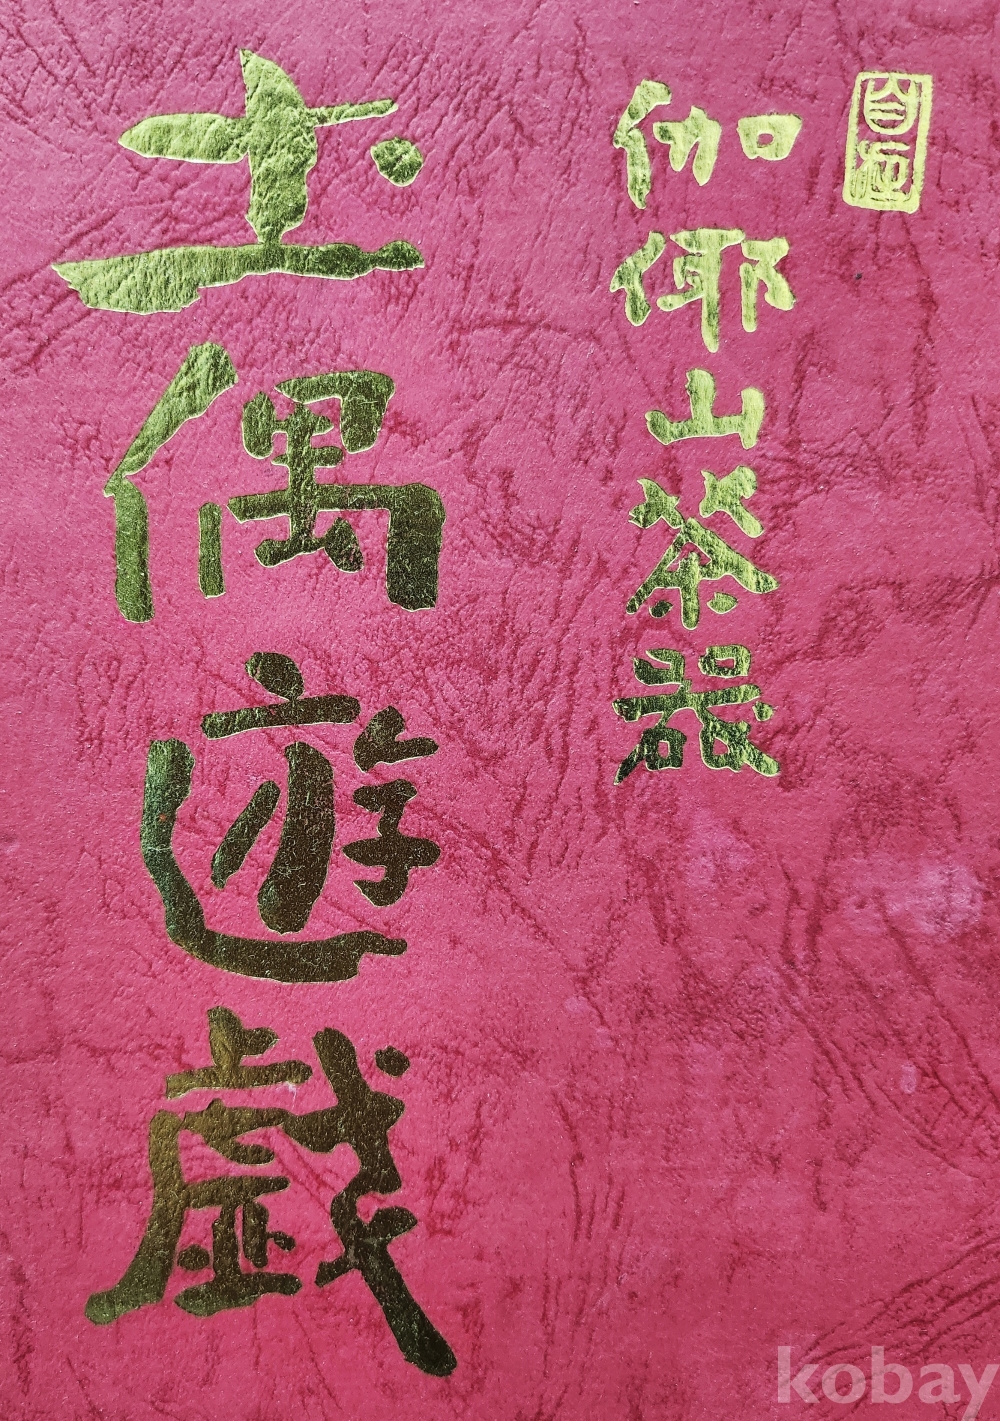 伽倻山茶器
圡偶遊戱
kobay